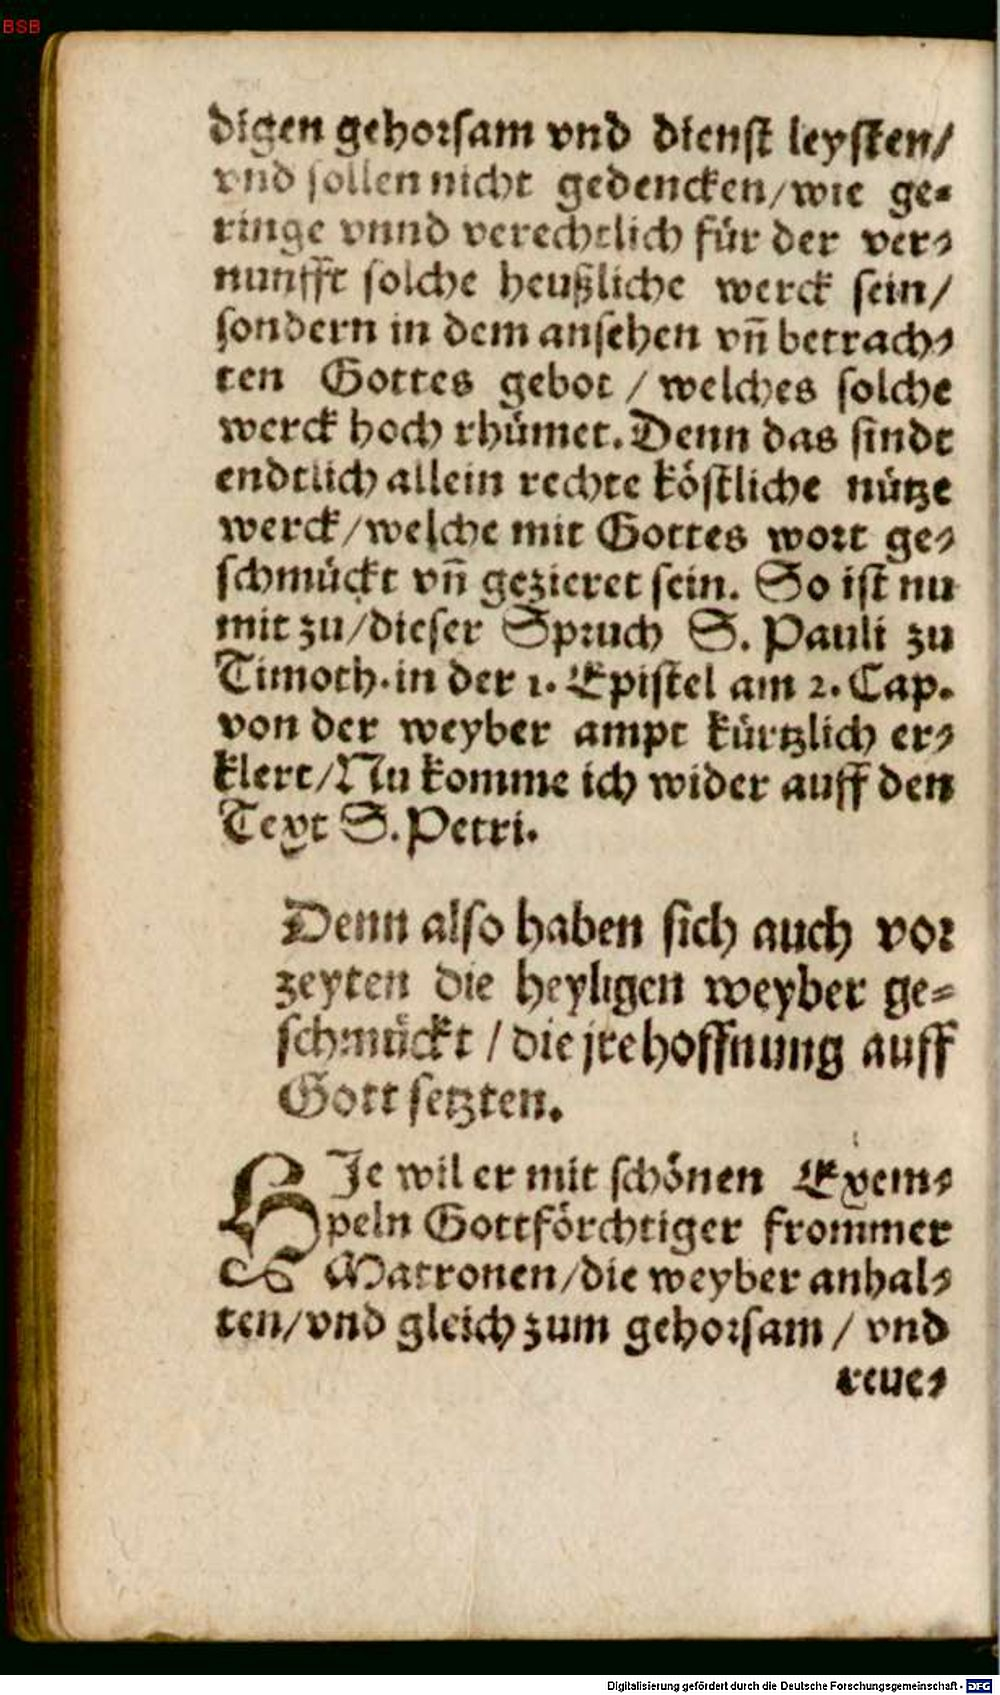 BSB
digen gehorsam vnd dienst leysten/
vnd sollen nicht gedencken/wie ge-
ringe vnnd verechtlich für der ver-
nunfft solche heußliche werck sein/
sondern in dem ansehen vñ betrach-
ten Gottes gebot / welches solche
werck hoch rhümet. Denn das sindt
endtlich allein rechte köstliche nütze
werck/welche mit Gottes wort ge-
schmückt vñ gezieret sein. So ist nu
mit zu/dieser Spruch S. Pauli zu
Timoth. in der 1. Epistel am 2. Cap.
von der weyber ampt kürtzlich er-
klert/Nu komme ich wider auff den
Text S. Petri.
Denn also haben sich auch vor
zeyten die heyligen weyber ge-
schmückt / die jre hoffnung auff
Gott setzten.
HJe wil er mit schönen Exem-
peln Gottförchtiger frommer
Matronen/die weyber anhal-
ten/vnd gleich zum gehorsam / vnd
reue-
Digitalisierung gefördert durch die Deutsche Forschungsgemeinschaft - DFG